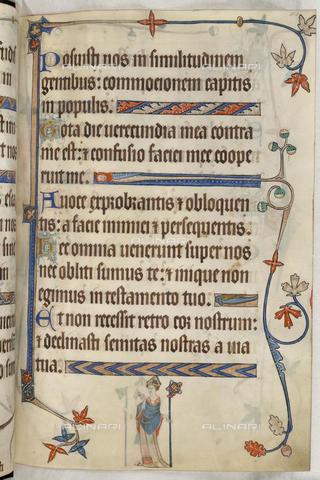 Posuisti nos in similitudinem
gentibus: commocionem capitis
in populis.
Tota die uerecundia mea contra
me est: & confusio faciei mee coope
ruit me.
A uoce exprobrantis & obloquen
tis: a facie inimici & persequentis.
Hec omnia uenerunt super nos
nec obliti sumus te: & inique non
egimus in testamento tuo.
Et non recessit retro cor nostrum:
& declinasti semitas nostras a uia
tua.
ALINARI
ALINARI
ALINARI
ALINARI